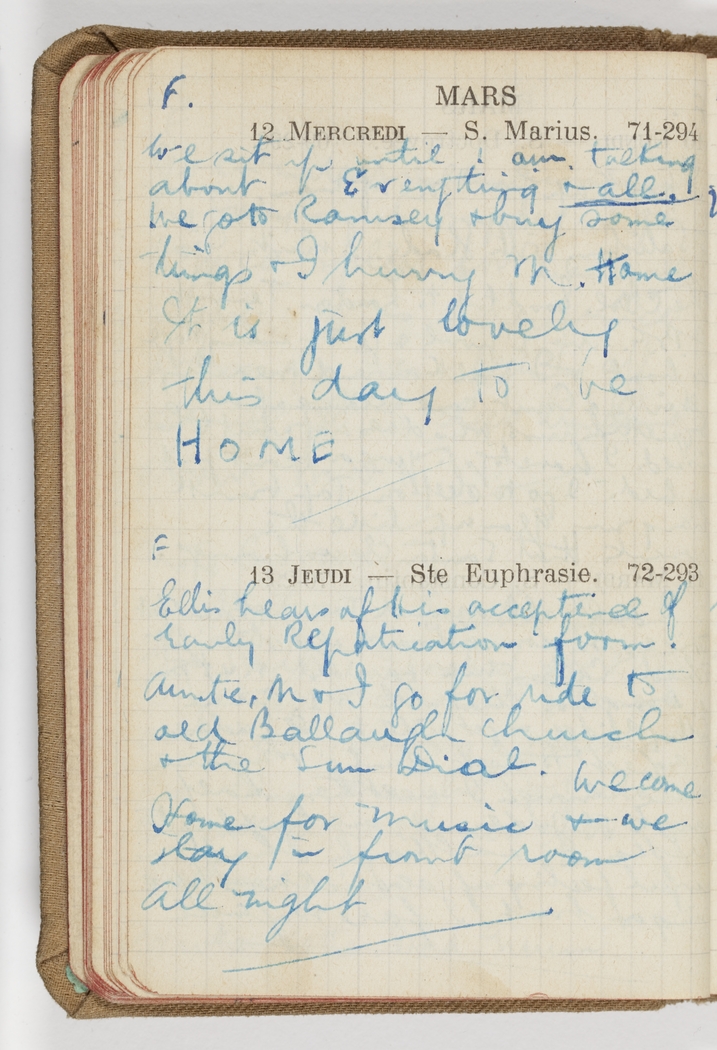 F.
MARS
12 MERCREDI — S. Marius. 71-294
We sit up until 1 am. talking
about Everything & all.
We go to Ramsey & buy some
things & I hurry M. Home
It is just lovely
this day to be
HOME
F
13 JEUDI — Ste Euphrasie. 72-293
Ellis hears of his acceptence of
Early Repatriation form.
Auntie, M & I go for ride to
old Ballaugh church
& the Sun Dial. We come
Home for Music & we
stay in front room
all night